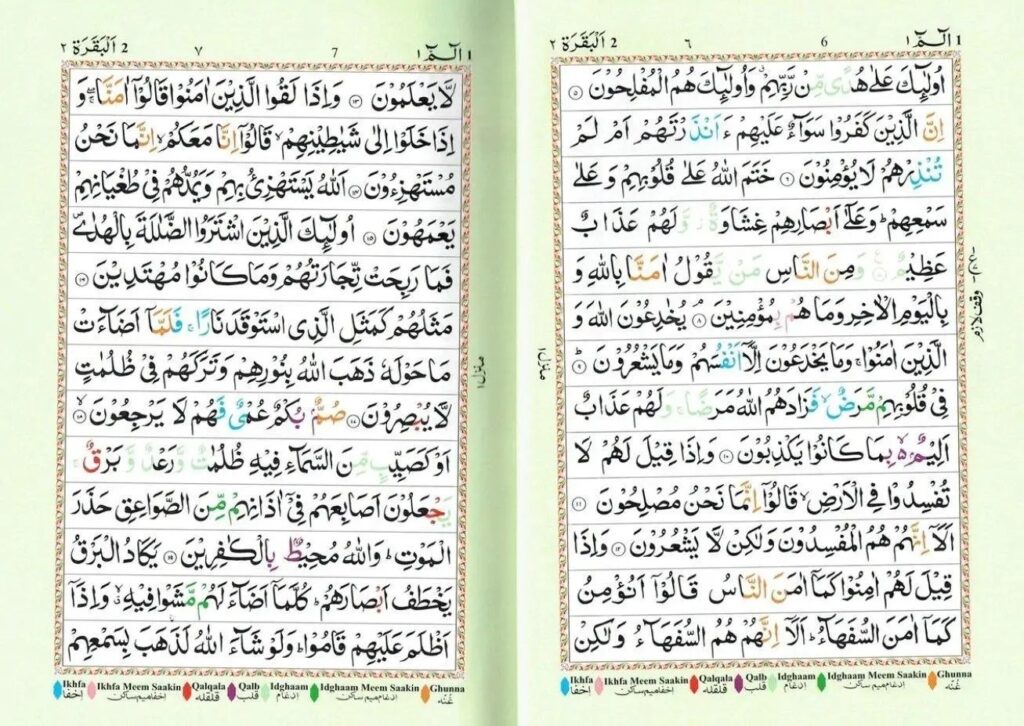 1 الٓمّٓ ١
6
٦
2 اَلْبَقَرَة ٢
اُولٰٓئِكَ عَلٰى هُدًى مِّنْ رَّبِّهِمْ ۗ وَاُولٰٓئِكَ هُمُ الْمُفْلِحُوْنَ ۝٥
اِنَّ الَّذِيْنَ كَفَرُوْا سَوَآءٌ عَلَيْهِمْ ءَاَنْذَرْتَهُمْ اَمْ لَمْ
تُنْذِرْهُمْ لَا يُؤْمِنُوْنَ ۝٦ خَتَمَ اللّٰهُ عَلٰى قُلُوْبِهِمْ وَعَلٰى
سَمْعِهِمْ ؕ وَعَلٰٓى اَبْصَارِهِمْ غِشَاوَةٌ ز وَّلَهُمْ عَذَابٌ
عَظِيْمٌ ۝٧ وَمِنَ النَّاسِ مَنْ يَّقُوْلُ اٰمَنَّا بِاللّٰهِ وَ
بِالْيَوْمِ الْاٰخِرِ وَمَا هُمْ بِمُؤْمِنِيْنَ ۘ ۝٨ يُخٰدِعُوْنَ اللّٰهَ وَ
الَّذِيْنَ اٰمَنُوْا ۚ وَمَا يَخْدَعُوْنَ اِلَّاۤ اَنْفُسَهُمْ وَمَا يَشْعُرُوْنَ ؕ ۝٩
فِيْ قُلُوْبِهِمْ مَّرَضٌ ۙ فَزَادَهُمُ اللّٰهُ مَرَضًا ۚ وَلَهُمْ عَذَابٌ
اَلِيْمٌۢ ۙ۬ بِمَا كَانُوْا يَكْذِبُوْنَ ۝١٠ وَاِذَا قِيْلَ لَهُمْ لَا
تُفْسِدُوْا فِى الْاَرْضِ ۙ قَالُوْۤا اِنَّمَا نَحْنُ مُصْلِحُوْنَ ۝١١
اَلَاۤ اِنَّهُمْ هُمُ الْمُفْسِدُوْنَ وَلٰكِنْ لَّا يَشْعُرُوْنَ ۝١٢ وَاِذَا
قِيْلَ لَهُمْ اٰمِنُوْا كَمَاۤ اٰمَنَ النَّاسُ قَالُوْۤا اَنُؤْمِنُ
كَمَاۤ اٰمَنَ السُّفَهَآءُ ؕ اَلَاۤ اِنَّهُمْ هُمُ السُّفَهَآءُ وَلٰكِنْ
وقف لازم
منزل ١
Ikhfa Ikhfa Meem Saakin Qalqala Qalb Idghaam Idghaam Meem Saakin Ghunna
اخفا اخفا میم ساکن قلقلہ قلب ادغام ادغام میم ساکن غُنّہ
1 الٓمّٓ ١
7
٧
2 اَلْبَقَرَة ٢
لَّا يَعْلَمُوْنَ ۝١٣ وَاِذَا لَقُوا الَّذِيْنَ اٰمَنُوْا قَالُوْۤا اٰمَنَّا ۚۖ وَ
اِذَا خَلَوْا اِلٰى شَيٰطِيْنِهِمْ ۙ قَالُوْۤا اِنَّا مَعَكُمْ ۙ اِنَّمَا نَحْنُ
مُسْتَهْزِءُوْنَ ۝١٤ اَللّٰهُ يَسْتَهْزِئُ بِهِمْ وَيَمُدُّهُمْ فِيْ طُغْيَانِهِمْ
يَعْمَهُوْنَ ۝١٥ اُولٰٓئِكَ الَّذِيْنَ اشْتَرَوُا الضَّلٰلَةَ بِالْهُدٰى ۪
فَمَا رَبِحَتْ تِّجَارَتُهُمْ وَمَا كَانُوْا مُهْتَدِيْنَ ۝١٦
مَثَلُهُمْ كَمَثَلِ الَّذِى اسْتَوْقَدَ نَارًا ۚ فَلَمَّاۤ اَضَآءَتْ
مَا حَوْلَهٗ ذَهَبَ اللّٰهُ بِنُوْرِهِمْ وَتَرَكَهُمْ فِيْ ظُلُمٰتٍ
لَّا يُبْصِرُوْنَ ۝١٧ صُمٌّۢ بُكْمٌ عُمْيٌ فَهُمْ لَا يَرْجِعُوْنَ ۙ ۝١٨
اَوْ كَصَيِّبٍ مِّنَ السَّمَآءِ فِيْهِ ظُلُمٰتٌ وَّرَعْدٌ وَّبَرْقٌ ۚ
يَجْعَلُوْنَ اَصَابِعَهُمْ فِيْۤ اٰذَانِهِمْ مِّنَ الصَّوَاعِقِ حَذَرَ
الْمَوْتِ ؕ وَاللّٰهُ مُحِيْطٌۢ بِالْكٰفِرِيْنَ ۝١٩ يَكَادُ الْبَرْقُ
يَخْطَفُ اَبْصَارَهُمْ ؕ كُلَّمَاۤ اَضَآءَ لَهُمْ مَّشَوْا فِيْهِ ۙ وَاِذَاۤ
اَظْلَمَ عَلَيْهِمْ قَامُوْا ؕ وَلَوْ شَآءَ اللّٰهُ لَذَهَبَ بِسَمْعِهِمْ
منزل ١
Ikhfa Ikhfa Meem Saakin Qalqala Qalb Idghaam Idghaam Meem Saakin Ghunna
اخفا اخفا میم ساکن قلقلہ قلب ادغام ادغام میم ساکن غُنّہ